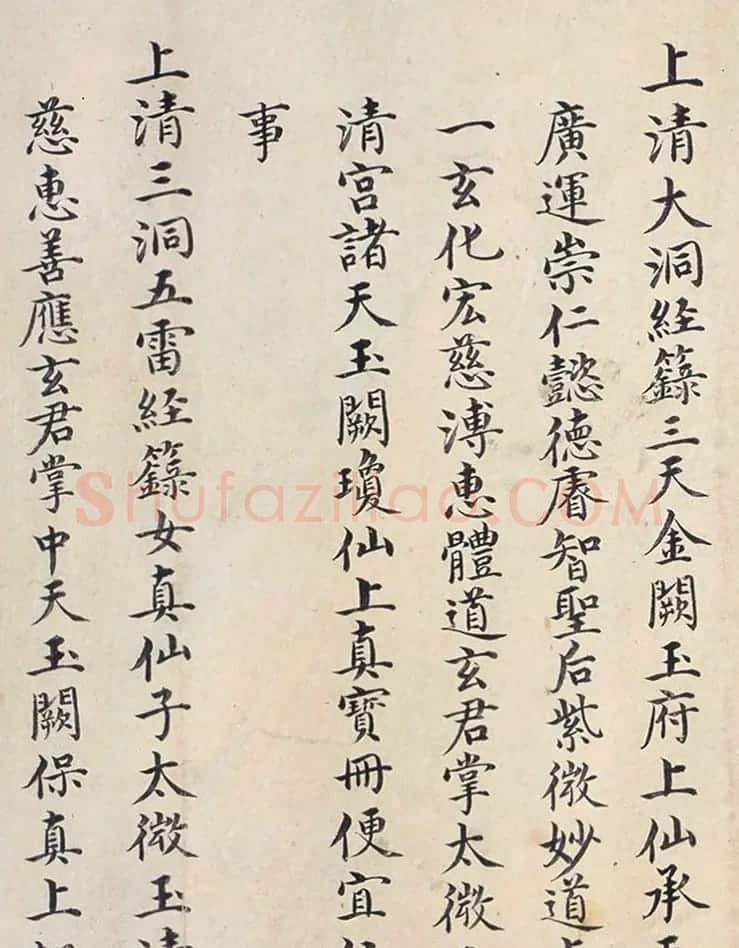 上清大洞経籙三天金闕玉府上仙承
廣運崇仁懿德睿智聖后紫微妙道
一玄化宏慈溥惠體道玄君掌太微
清宮諸天玉闕瓊仙上真寶冊便宜
事
上清三洞五雷経籙女真仙子太微玉
慈惠善應玄君掌中天玉闕保真上
shufaziliao.COM